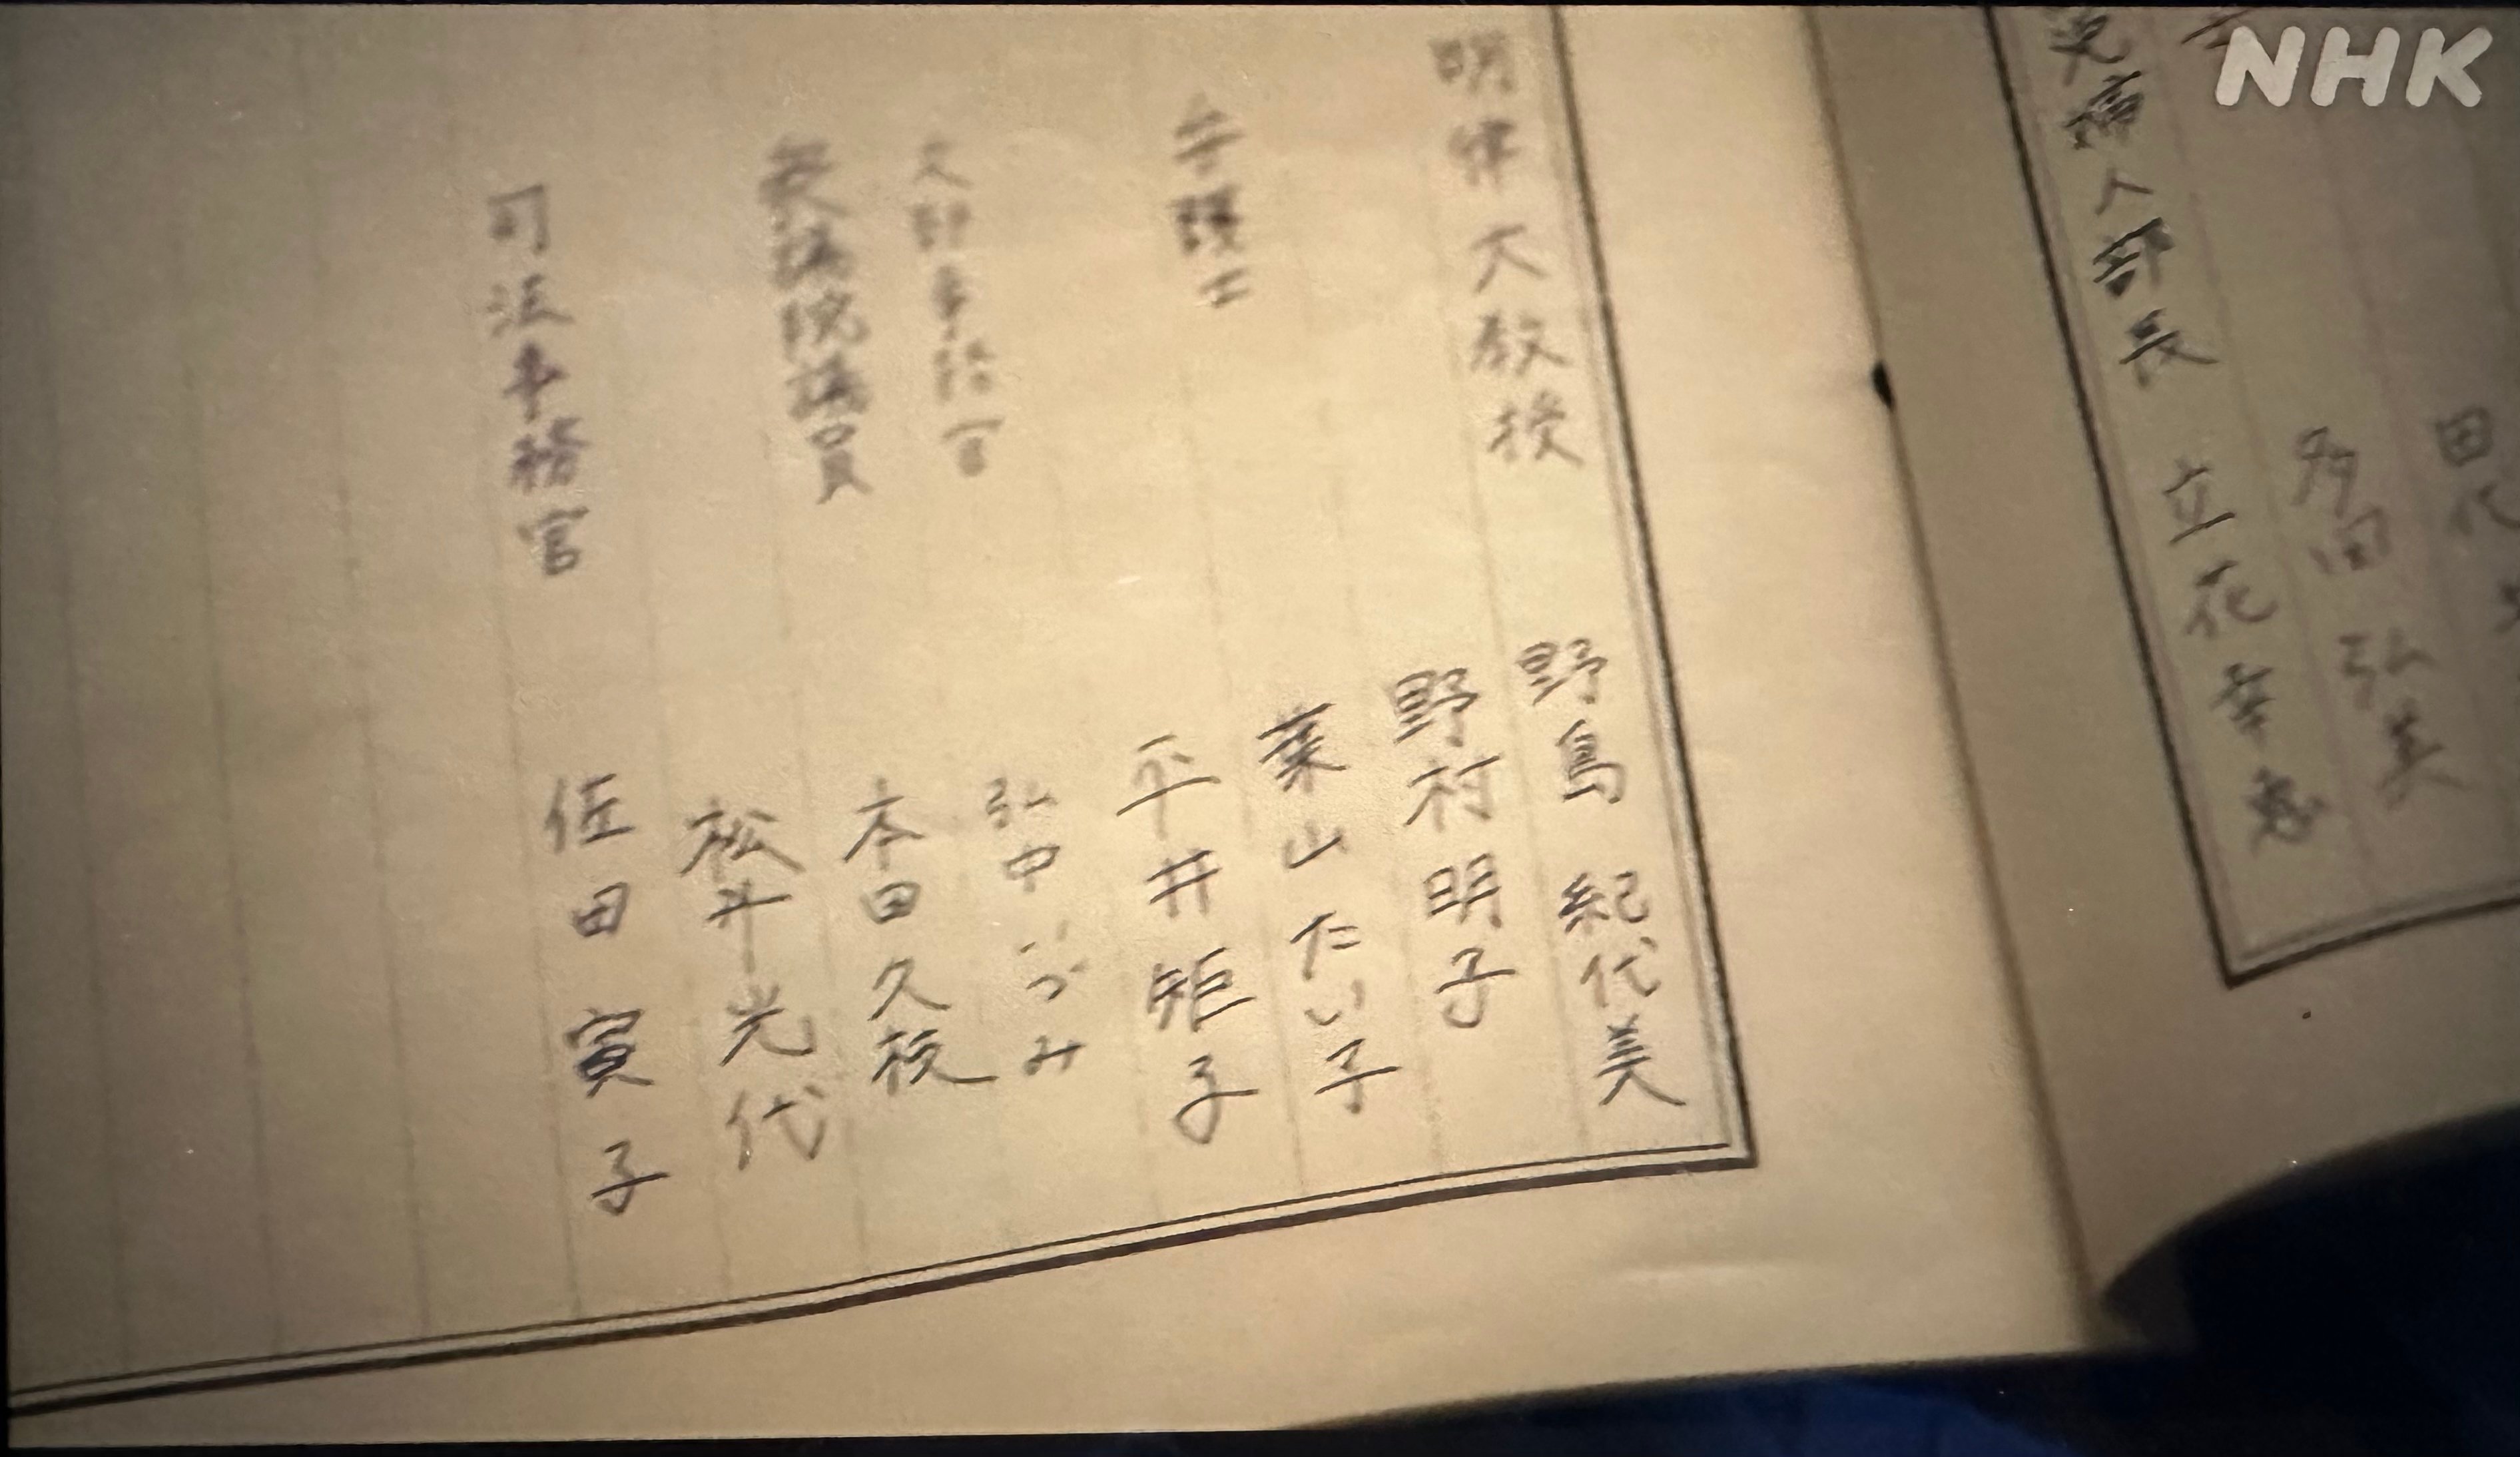 NHK
田代
多田弘美
婦人部長 立花幸恵
野島 紀代美
明律大教授 野村明子
葉山たい子
弁護士 平井矩子
文部事務官 弘中いづみ
衆議院議員 本田久枝
松井光代
司法事務官 佐田寅子